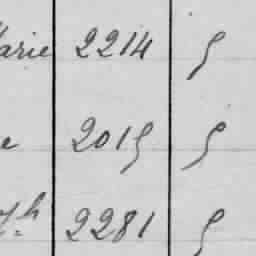 Marie 2214 5
e 2015 5
th 2281 5